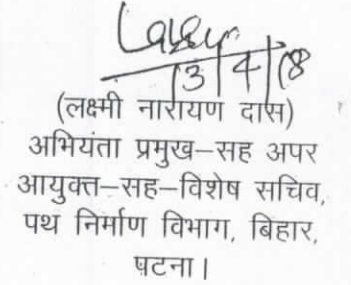 3/4/18
(लक्ष्मी नारायण दास)
अभियंता प्रमुख–सह अपर
आयुक्त–सह–विशेष सचिव,
पथ निर्माण विभाग, बिहार,
पटना।